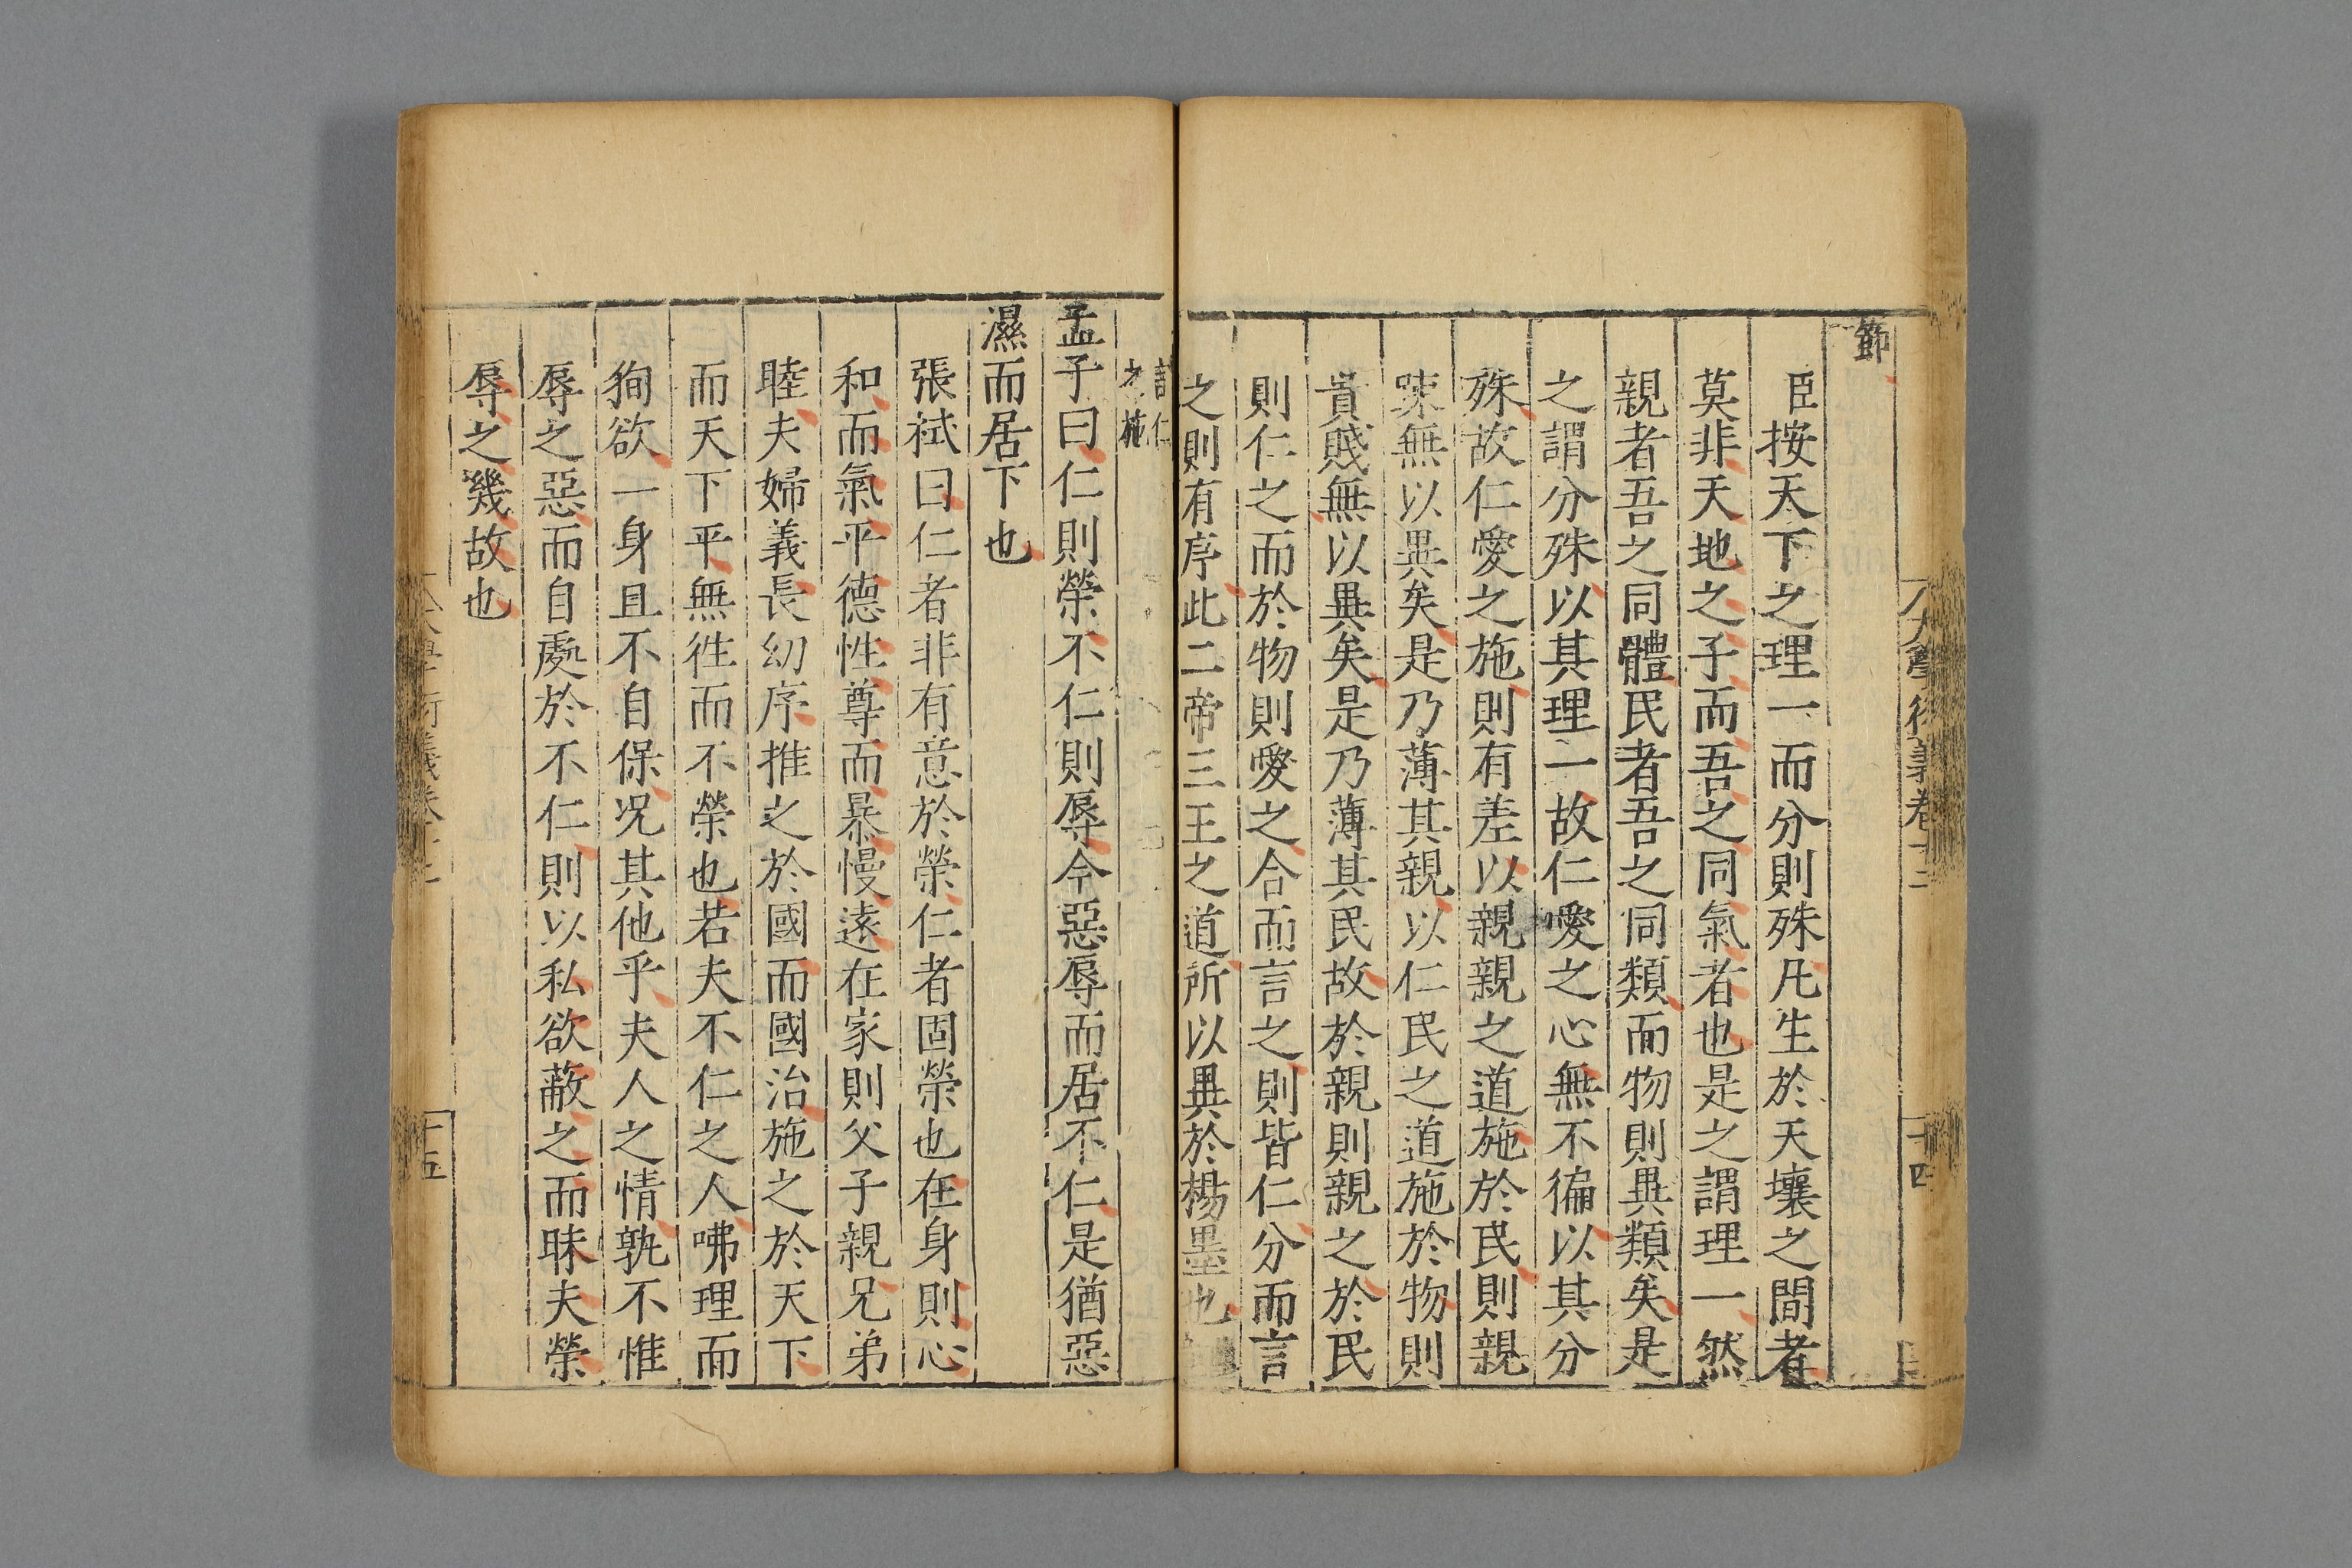 節
臣按天下之理一而分則殊凡生於天壤之間者
莫非天地之子而吾之同氣者也是之謂理一然
親者吾之同體民者吾之同類而物則異類矣是
之謂分殊以其理一故仁愛之心無不徧以其分
殊故仁愛之施則有差以親親之道施於民則親
疎無以異矣是乃薄其親以仁民之道施於物則
貴賤無以異矣是乃薄其民故於親則親之於民
則仁之而於物則愛之合而言之則皆仁分而言
之則有序此二帝三王之道所以異於楊墨也
言仁
之施
孟子曰仁則榮不仁則辱今惡辱而居不仁是猶惡
濕而居下也
張栻曰仁者非有意於榮仁者固榮也在身則心
和而氣平德性尊而暴慢遠在家則父子親兄弟
睦夫婦義長幼序推之於國而國治施之於天下
而天下平無徃而不榮也若夫不仁之人咈理而
狥欲一身且不自保况其他乎夫人之情孰不惟
辱之惡而自處於不仁則以私欲蔽之而昧夫榮
辱之幾故也
十四
十五